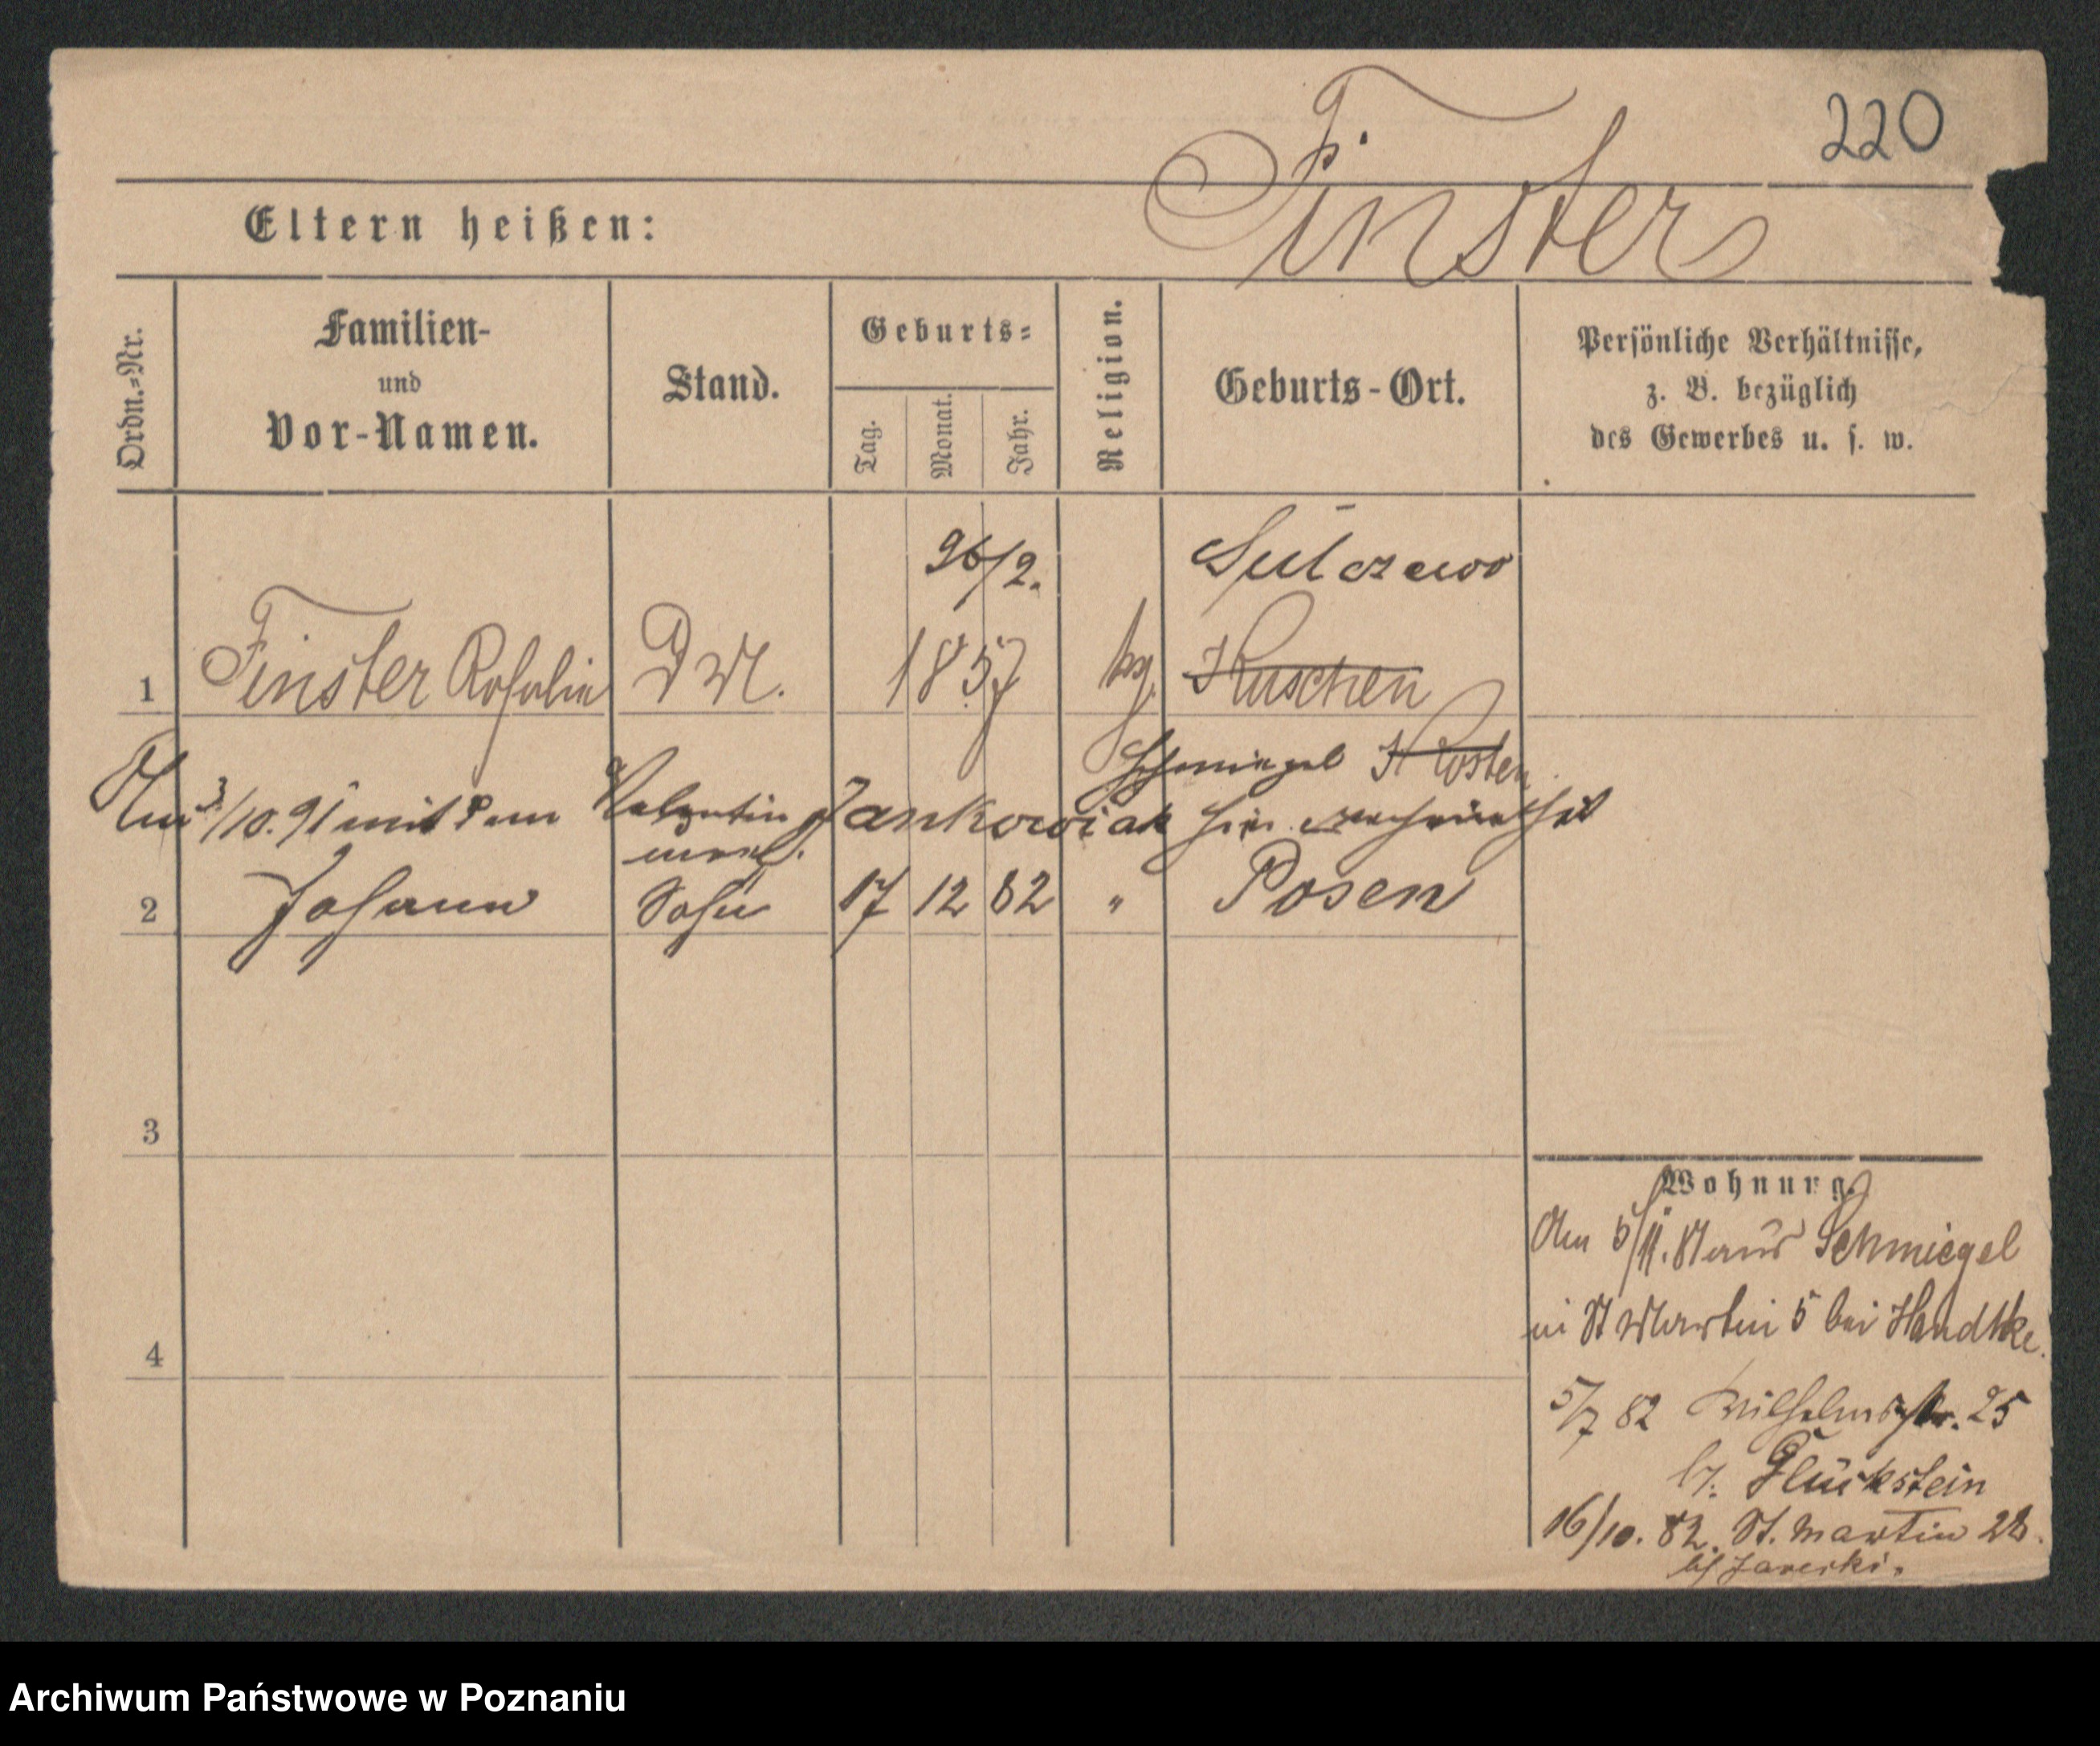 220
Finster
Eltern heißen:
Ordn.-Nr.
Familien-
und
Vor-Namen.
Stand.
Geburts-
Tag.
Monat.
Jahr.
Religion.
Geburts-Ort.
Persönliche Verhältnisse,
z. B. bezüglich
des Gewerbes u. s. w.
26/2. Sulczewo
1 Finster Rosalia DM. 1857 kg. Kuschen
Schmiegel Kosten
Am 3/10.91 mit dem Valentin Jankowiak hier verheirathet
2 Johann Sohn 17 12 82 " Posen
3
4
Wohnung.
Am 5/11. 81 aus Schmiegel
in St Martin 5 bei Handtke.
5/7 82 Wilhelmsstr. 25
b. Glückstein
16/10. 82. St. Martin 28.
bei
Archiwum Państwowe w Poznaniu